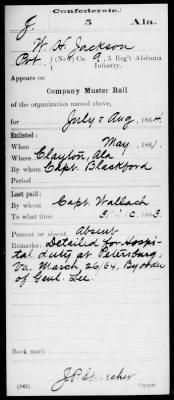 Confederate.
J. 5 Ala.
W. H. Jackson
Pvt, (New) Co. A, 5 Reg't Alabama
Infantry.
Appears on
Company Muster Roll
of the organization named above,
for July & Aug, 1864.
Enlisted:
When May, 1861.
Where Clayton, Ala
By whom Capt. Blackford
Period
Last paid:
By whom Capt. Wallach
To what time 1863.
Present or absent Absent
Remarks: Detailed for Hospi-
tal duty at Petersburg,
Va. March, 26/64, By order
of Genl. Lee.
Book mark:
(642) Copyist.